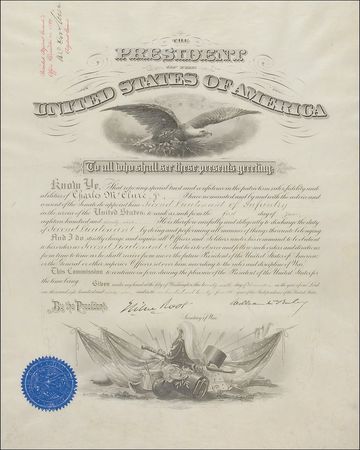 THE
PRESIDENT
OF THE
UNITED STATES OF AMERICA
To all who shall see these presents greeting:
Know Ye, That reposing special trust and confidence in the patriotism, valor, fidelity and
abilities of Charles McClure Jr., I have nominated and by and with the advice and
consent of the Senate do appoint him Second Lieutenant of Infantry
in the service of the United States: to rank as such from the first day of
eighteen hundred and He is therefore carefully and diligently to discharge the duty
of Second Lieutenant by doing and performing all manner of things thereunto belonging.
And I do strictly charge and require all Officers and Soldiers under his command to be obedient
to his orders as Second Lieutenant And he is to observe and follow such orders and directions
from time to time as he shall receive from me or the future President of the United States of America
or the General or other superior Officers set over him according to the rules and discipline of War.
This Commission to continue in force during the pleasure of the President of the United States for
the time being.
Given under my hand at the City of Washington this day of in the year of our Lord
one thousand eight hundred and and in the year of the Independence of the United States.
By the President.
Elihu Root
William McKinley
Secretary of War.